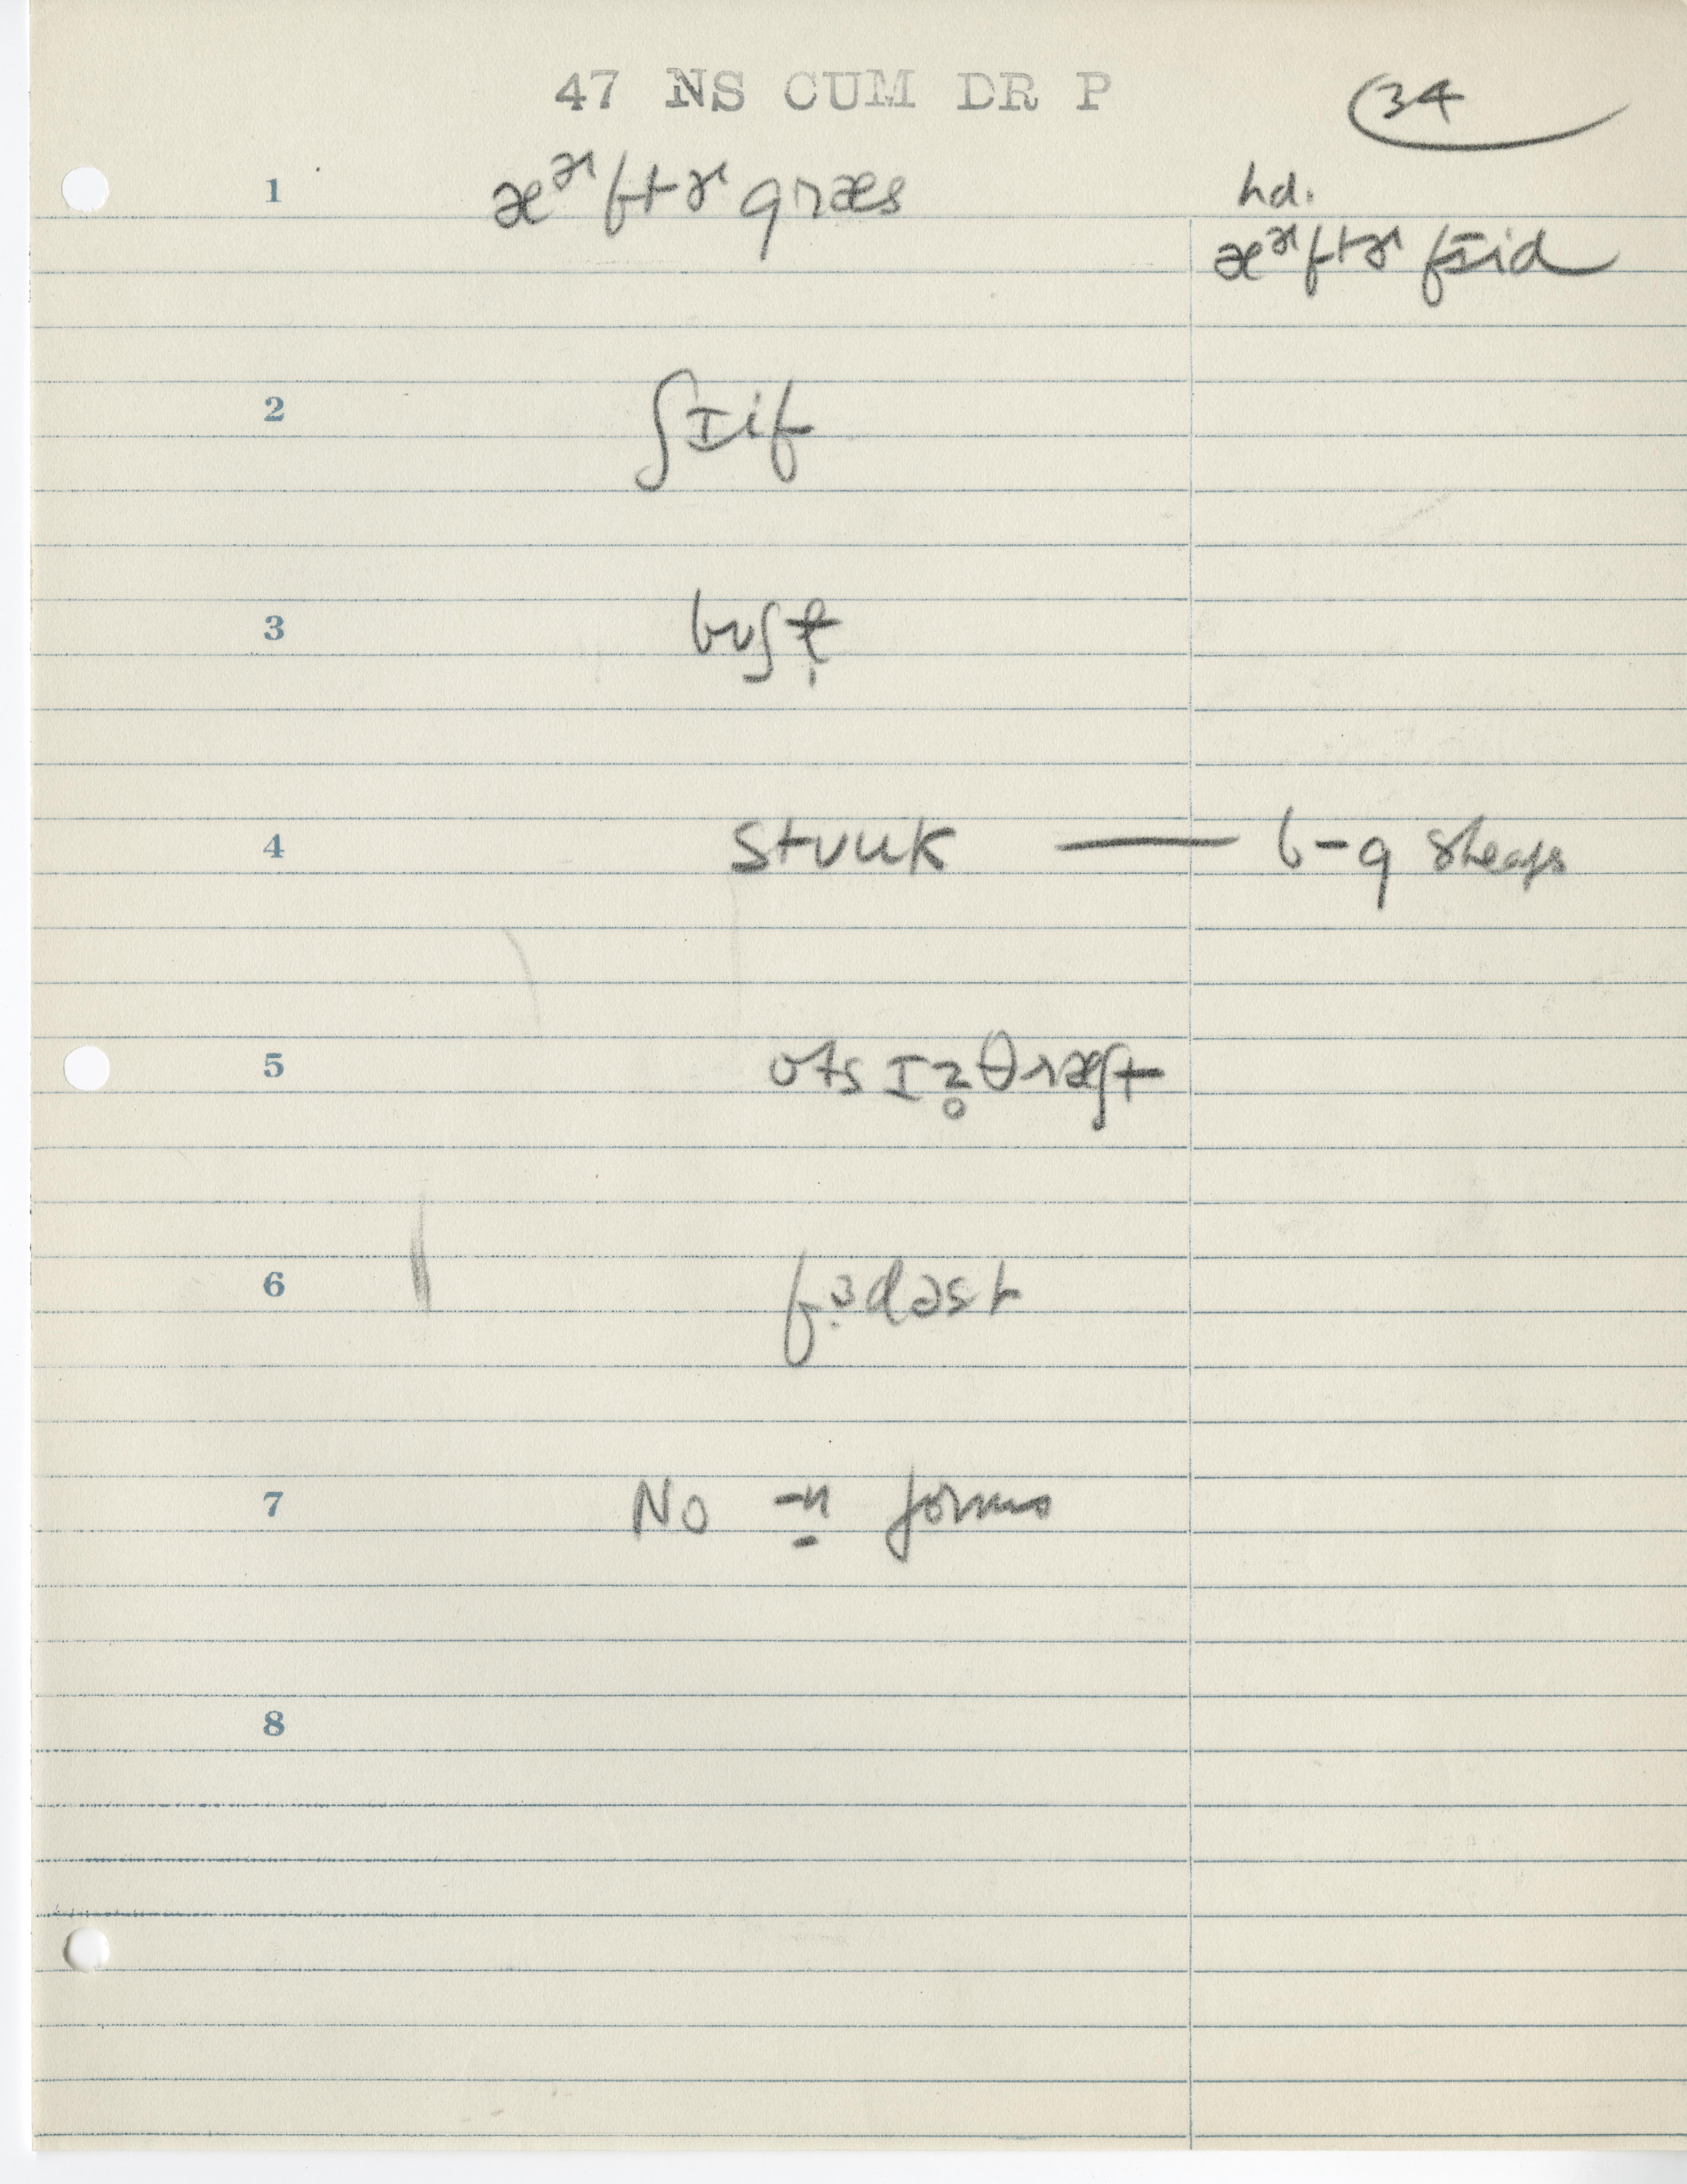 47 NS CUM DR P
34
1 æᵊftɚ græs
hd.
æᵊftɚ fɪid
2 ʃɪif
3 bʊʃt̩
4 stʊuk — 6-9 sheafs
5 ots ɪz̥ θræʃt
6 fɜ˞dəst
7 No -n forms
8